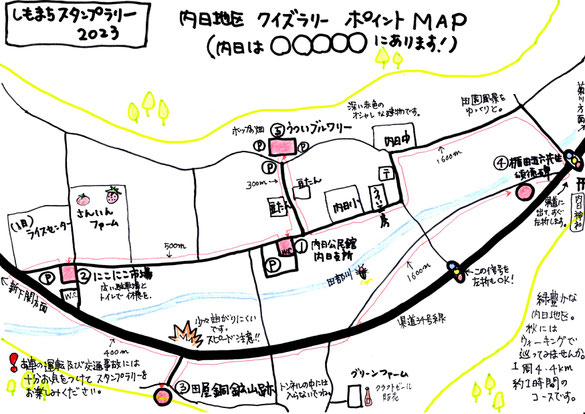 しもまちスタンプラリー
2023
内日地区 クイズラリー ポイント MAP
(内日は〇〇〇〇〇にあります!)
ホップ畑
⑤うついブルワリー
深い赤色の
オシャレな建物です。
田園風景を
ゆっくりと。
菊川方面
内日中
1600m
P
P
P
300m
豆たん
豆たん
内日小
〒
(旧)
ライスセンター
さんいん
ファーム
500m
①内日公民館
内日支所
W.C
P
④植田正六氏生
頌徳碑
内日神社
P
②にこにこ市場
広い駐車場と
トイレで休憩を。
W.C
新下関方面
田部川
1600m
この信号を
左折しOK!
県道34号線
少々曲がりにくい
です。
スピード注意!!
400m
③田屋銅鉱山跡
トンネルの中には
入らないでね。
グリーンファーム
クラフトビール
販売
お車の運転及び交通事故には
十分お気をつけてスタンプラリーを
お楽しみください。
緑豊かな
内日地区。
秋には
ウォーキングで
巡ってみませんか
1周4.4km
約1時間の
コースです。